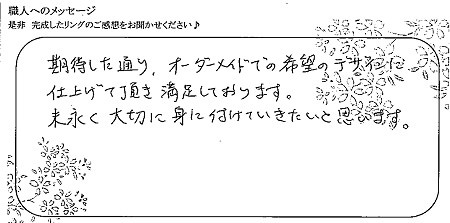 職人へのメッセージ
是非 完成したリングのご感想をお聞かせください♪
期待した通り、オーダーメイドでの希望のデザインに
仕上げて頂き満足しております。
末永く大切に身に付けていきたいと思います。